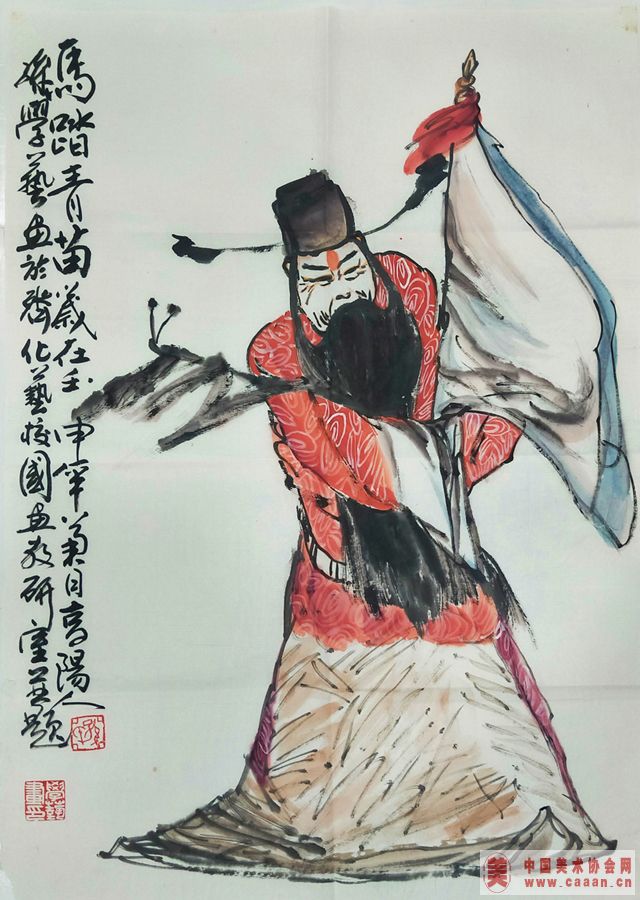 馬踏青苗歲在壬申年菊月高陽人
孫學藝画於齊化藝校國画教研室並題
美
中国美术协会网
www.caaan.cn